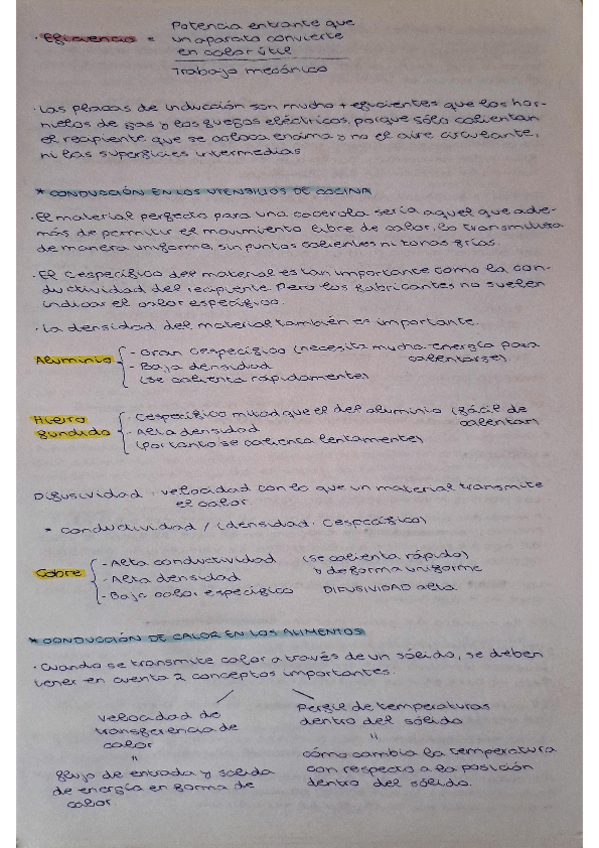 · Eficiencia = Potencia entrante que
un aparato convierte
en calor útil
Trabajo mecánico
· Las placas de inducción son mucho + eficientes que los hor-
nillos de gas y los fuegos eléctricos, porque sólo calientan
el recipiente que se coloca encima y no el aire circulante,
ni las superficies intermedias
* CONDUCCIÓN EN LOS UTENSILIOS DE COCINA
· El material perfecto para una cacerola sería aquel que ade-
más de permitir el movimiento libre de calor, lo transmitiera
de manera uniforme, sin puntos calientes ni zonas frías.
· El Cespecífico del material es tan importante como la con-
ductividad del recipiente. Pero los fabricantes no suelen
indicar el calor específico.
· La densidad del material también es importante.
Aluminio
- Gran Cespecífico (necesita mucha energía para
calentarse)
- Baja densidad
(se calienta rápidamente)
Hierro
fundido
- Cespecífico mitad que el del aluminio (fácil de
calentar)
- Alta densidad
(por tanto se calienta lentamente)
Difusividad: velocidad con lo que un material transmite
el calor.
= conductividad / (densidad · Cespecífico)
Cobre
- Alta conductividad (se calienta rápido)
- Alta densidad y de forma uniforme
- Bajo calor específico DIFUSIVIDAD alta
* CONDUCCIÓN DE CALOR EN LOS ALIMENTOS
· Cuando se transmite calor a través de un sólido, se deben
tener en cuenta 2 conceptos importantes:
velocidad de
transferencia de
calor
=
flujo de entrada y salida
de energía en forma de
calor
Perfil de temperaturas
dentro del sólido
=
cómo cambia la temperatura
con respecto a la posición
dentro del sólido.